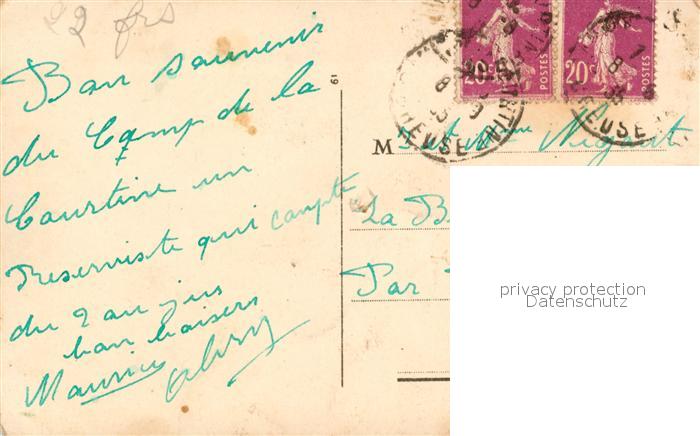 2 frs
Bon souvenir
du Camp de la
Courtine un
Reserviste qui compte
du 2 au jus
bon baisers
Maurice
19
20c POSTES
20c POSTES
CREUSE
CREUSE
M et Mme
La B
Par
privacy protection
Datenschutz